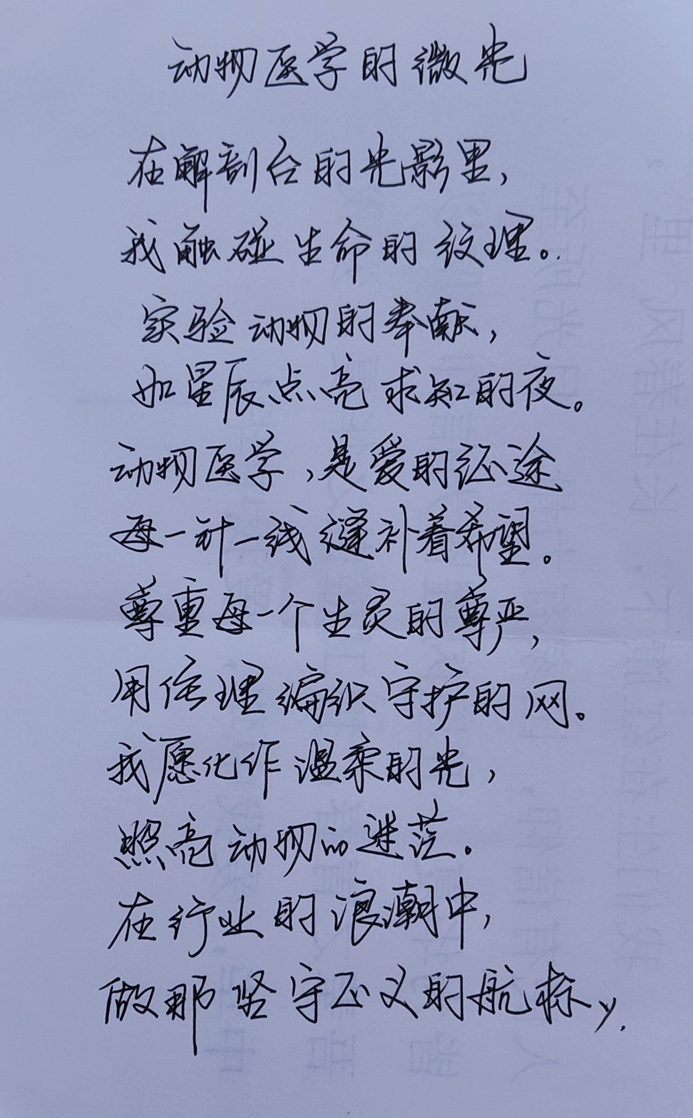 动物医学的微光
在解剖台的光影里，
我触碰生命的纹理。
实验动物的奉献，
如星辰点亮求知的夜。
动物医学，是爱的征途
每一针一线缝补着希望。
尊重每一个生灵的尊严，
用伦理编织守护的网。
我愿化作温柔的光，
照亮动物的迷茫。
在行业的浪潮中，
做那坚守正义的航标